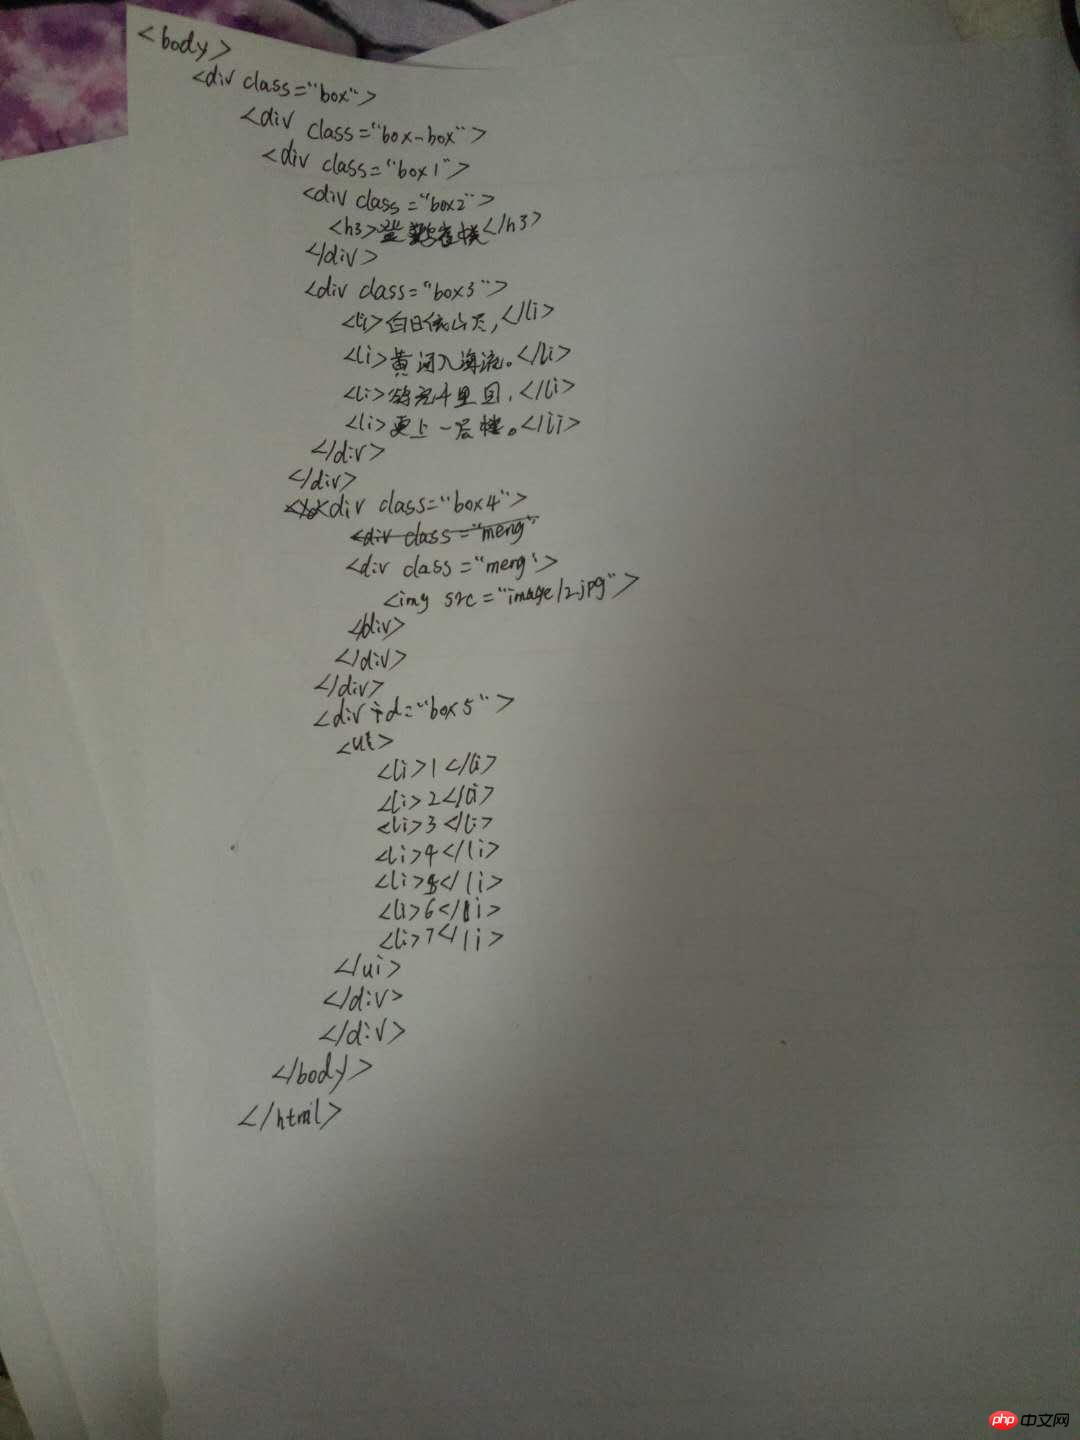 <body>
<div class="box">
<div class="box-box">
<div class="box1">
<div class="box2">
<h3>登鹳雀楼</h3>
</div>
<div class="box3">
<li>白日依山尽,</li>
<li>黄河入海流。</li>
<li>欲穷千里目,</li>
<li>更上一层楼。</li>
</div>
</div>
<div class="box4">
<div class="meng"
<div class="meng">
<img src="image/2.jpg">
</div>
</div>
</div>
<div id="box5">
<ul>
<li>1</li>
<li>2</li>
<li>3</li>
<li>4</li>
<li>5</li>
<li>6</li>
<li>7</li>
</ui>
</div>
</div>
</body>
</html>
php 中文网